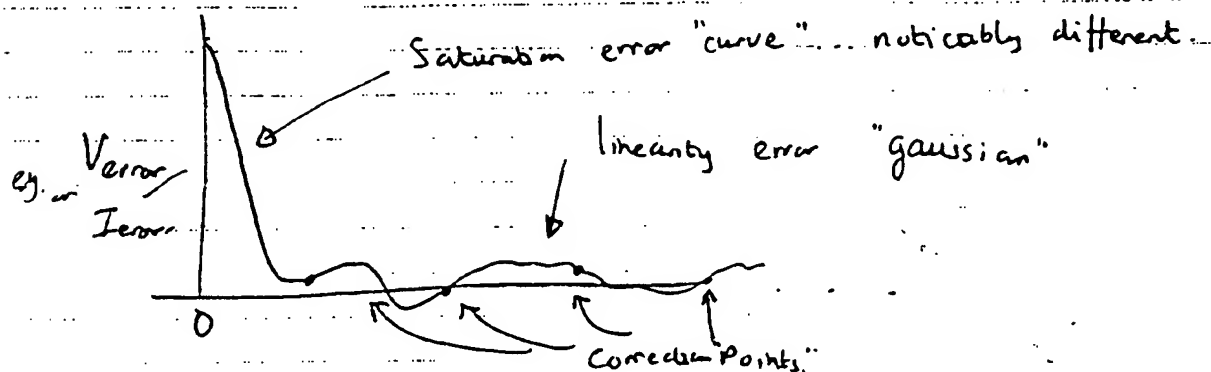 Saturation error "curve"... noticably different.
linearity error "gaussian"
eg. Verror
Ierror
0
Correction Points."